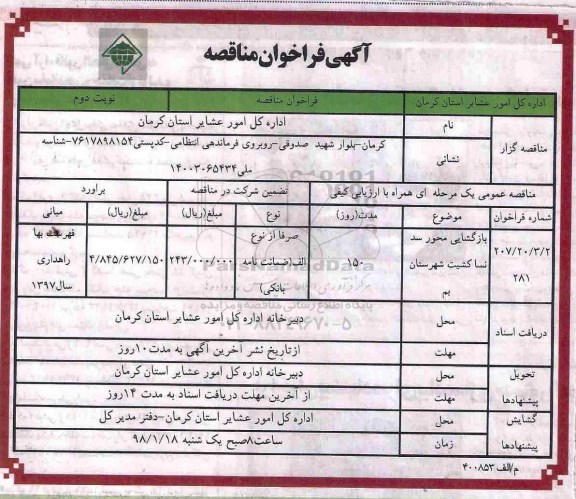 آگهی فراخوان مناقصه
اداره کل امور عشایر استان کرمان
فراخوان مناقصه
نوبت دوم
مناقصه گزار
نام
اداره کل امور عشایر استان کرمان
نشانی
کرمان-بلوار شهید صدوقی-روبروی فرماندهی انتظامی-کدپستی۷۶۱۷۸۹۸۱۵۴-شناسه
ملی۱۴۰۰۳۰۶۵۴۳۴
مناقصه عمومی یک مرحله ای همراه با ارزیابی کیفی
تضمین شرکت در مناقصه
برآورد
شماره فراخوان
موضوع
مدت(روز)
نوع
مبلغ(ریال)
مبلغ(ریال)
مبانی
۲۰۷/۲۰/۳/۲
۲۸۱
بازگشایی محور سد
نسا کشیت شهرستان
بم
۱۵۰
صرفا از نوع
الف(ضمانت نامه
بانکی)
۲۴۳/۰۰۰/۰۰۰
۴/۸۴۵/۶۲۷/۱۵۰
فهرست بها
راهداری
سال۱۳۹۷
دریافت اسناد
محل
دبیرخانه اداره کل امور عشایر استان کرمان
مهلت
ازتاریخ نشر آخرین آگهی به مدت۱۰روز
تحویل
پیشنهادها
محل
دبیرخانه اداره کل امور عشایر استان کرمان
مهلت
از آخرین مهلت دریافت اسناد به مدت ۱۴روز
گشایش
پیشنهادها
محل
اداره کل امور عشایر استان کرمان-دفتر مدیر کل
زمان
ساعت۸صبح یک شنبه ۹۸/۱/۱۸
م/الف ۴۰۰۸۵۳
ParsNamadData
پایگاه اطلاع رسانی مناقصه و مزایده
۰۲۱-۸۸۳۴۹۶۷۰-۵